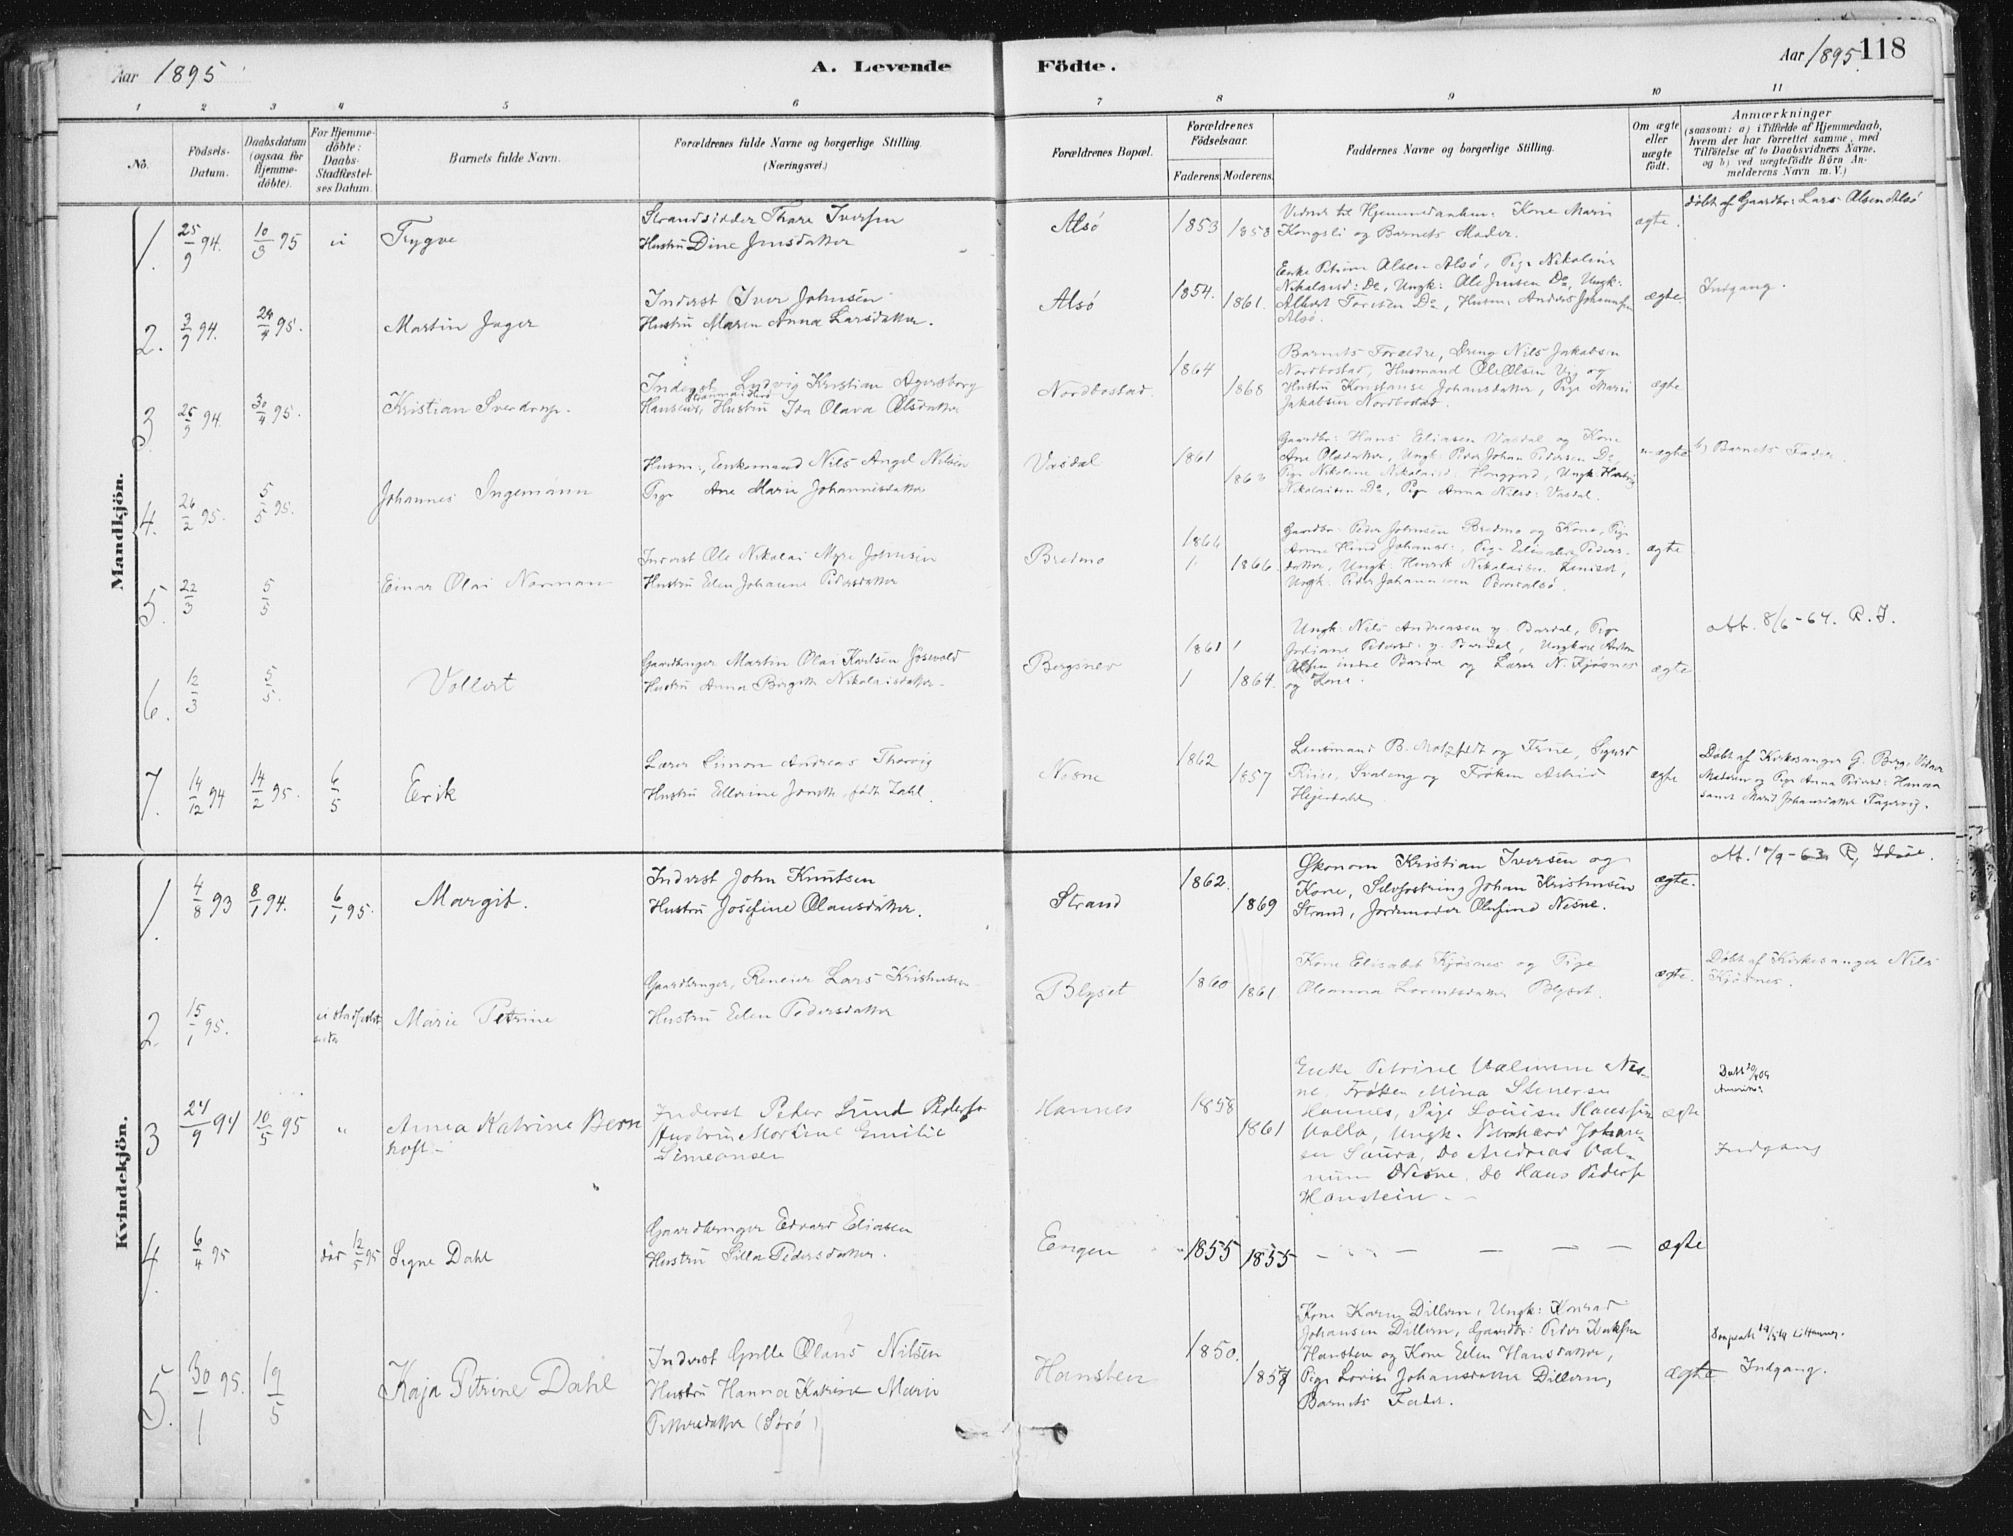 Aar 1895
A. Levende
Födte.
Aar 1895.
118
1 2 3 4 5 6 7 8 9 10 11
No.
Födsels-
Datum.
Daabsdatum
(ogsaa for
Hjemme-
döbte).
For Hjemme-
döbte:
Daabs-
Stadfæstel-
ses Datum.
Barnets fulde Navn.
Forældrenes fulde Navne og borgerlige Stilling.
(Næringsvei.)
Forældrenes Bopæl.
Forældrenes
Födselsaar.
Faderens. Moderens.
Faddernes Navne og borgerlige Stilling.
Om ægte
eller
uægte
födt.
Anmærkninger
(saasom: a) i Tilfælde af Hjemmedaab,
hvem der har forrettet samme, med
Tilföielse af to Daabsvidners Navne,
og b) ved uægtefödte Börn An-
melderens Navn m. V.)
Mandkjön.
1. 25/9 94. 10/3 95
Trygve
Strandsidder Thare Iversen
Hustru Dine Jensdatter
Alsö
1853 1858
Vidner til Hjemmedaaben: Kone Marie
Kongsli og Barnets Moder.
ægte.
döbt af Gaardbr: Lars Olsen Alsö
2. 3/9 94. 28/4 95.
Martin Jager
Inderst Iver Johnsen
Hustru Maren Anna Larsdatter.
Alsö
1854. 1861.
Enke Petrine Olsen Alsö, Pige Nikoline
Nikolaisd: Do, Ungk: Ole Jensen Do, Ungk:
Albert Toresen Do, Husm: Anders Johannesen
Alsö.
ægte.
Indgang.
3 25/9 94. 30/4 95.
Kristian Sverdrup.
Inderst Ludvig Kristian Agersborg
Hansens, Hustru Ida Olava Olsdatter
Nordbostad.
1864 1868
Barnets Forældre, Dreng Nils Jakobsen
Nordbostad, Husmand Ole Olsen og
Hustru Konstanse Johansdatter, Pige Marie
Jakobsen Nordbostad.
ægte
4. 26/2 95. 5/5 95.
Johannes Ingemann
Husm:, Enkemand Nils Angel Nilsen
Pige Ane Marie Johannesdatter
Vasdal
1861
Gaardbr: Hans Eliasen Vasdal og Kone
Ane Olsdatter, Ungk: Peder Johan Pedersen Do
Pige Nikoline Nikolaisd, Ungk: Hartvig
Nikolaisen Do, Pige Anna Nilsd: Vasdal.
uægte
b) Barnets Fader.
5. 22/3 5/5
Einar Olai Norman
Inderst Ole Nikolai Myre Johnsen
Hustru Elen Johanne Pedersdatter
Bredmo
1866 1866.
Gaardbr: Peder Johnsen Bredmo og Kone, Pige
datter, Ungk: Henrik Nikolaisen
Ungk: Peder Johannesen
ægte
6. 12/3 5/5.
Vollert
Gaardbruger Martin Olai Karlsen
Hustru Anna Birgitte Nikolaisdatter
Bergsnev
1861 1864.
Ungk: Nils Andreasen y. Bardal, Pige
Jordiane Petersd: y. Bardal, Ungkarl Anton
Olsen indre Bardal og Lærer N. Kjösnes
og Kone.
ægte
Att. 8/6-64. R. I.
7. 14/12 94 14/2 95. 6/5
Erik
Lærer Simon Andreas Thorvig
Hustru Ellerine födt Zahl.
Nesne
1862 1857
Lensmand B. Motzfeldt og Frue, Sigurd
og Fröken Astrid
Hejerdahl
ægte
Döbt af Kirkesanger G. Berg, Vidner
Moderen og Pige Anna
samt Marit Johansdatter
Kvindekjön.
1. 4/8 93 8/1 94. 6/1 95.
Margit.
Inderst John Knutsen
Hustru Josefine Olausdatter.
Strand
1862. 1869
Økonom Kristian Iversen og
Kone, Johan Kristensen
Strand, Jordemoder Olufine Nesne.
ægte.
Att. 10/9-63 R,
2 15/1 95.
Marie Petrine
Gaardbruger, Lars Kristensen
Hustru Elen Pedersdatter
Blyset
1860 1861
Kone Elisabet Kjösnes og Pige
Oleanna Lorentsdatter Blyset.
ægte.
Döbt af Kirkesanger Nils
Kjösnes.
3 24/9 94 10/5 95 "
Anna Katrine Bern
hoft.
Inderst Peder Lund Peders.
Hustru Martine Emilie
Simeonsen
Hannes
1858 1861
Enke Petrine Valnum Nes-
ne, Fröken Mina Stenersen
Hannes, Pige Lovise Hansen
Valla, Ungk. Bernhard Johan-
sen Saura, Do Andreas Val-
num Nesne, Do Hans Peders.
Hanstein.
ægte
Indgang
4. 6/4 95 död 12/5 95
Signe Dahl
Gaardbruger Edvard Eliasen
Hustru Silla Pedersdatter.
Engen
1855 1855
ægte
5. 30/1 95. 19/5
Kaja Petrine Dahl
Inderst Grille Olaus Nilsen
Hustru Hanna Katrine Marie
Pettersdatter (Sörö)
Hansten
1850. 1857
Kone Karen Dillern, Ungk: Konrad
Johansen Dillern, Gaardbr: Peder
Hansten og Kone Elen Hansdatter,
Pige Lovise Johansdatter Dillern,
Barnets Fader.
ægte
Indgang.